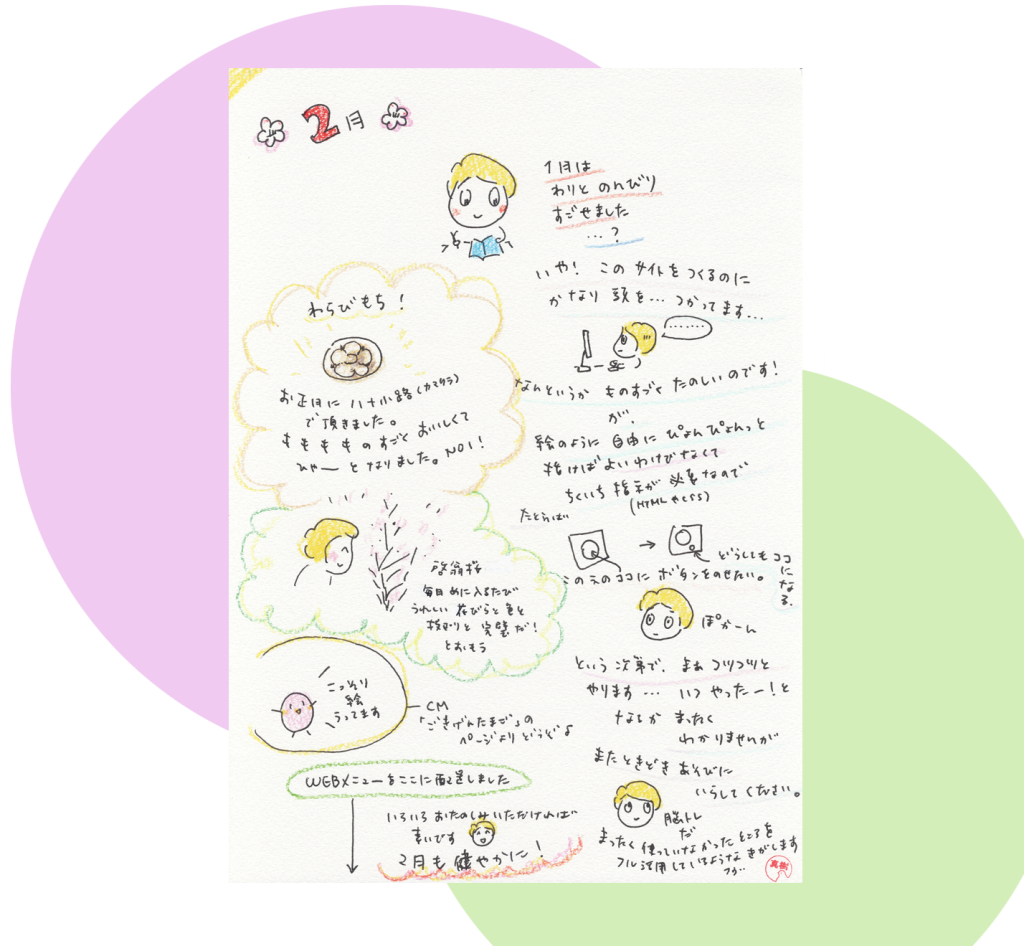 2月
1月は
わりと のんびり
すごせました
…?
いや! この サイトを つくるのに
かなり 頭を… つかってます…
……
なんというか ものすごく たのしいのです!
が、
絵のように 自由に ぴょんぴょんと
描けば よい わけじゃなくて
ちくいち 指示が 必要なので
(HTMLやCSS)
たとえば
→
この元のココに ボタンをのせたい。
どうしても ココになる.
ぽかーん
という 次第で、まあ コツコツと
やります… いつ やったー!と
なるか まったく
わかりませんが
また ときどき あそびに
いらして ください。
脳トレ
だ
まったく 使っていなかった ところを
フル活用しているような きがします
フウ…
真樹
わらびもち!
お正月に 八十小路(カマクラ)
で 頂きました。
もももものすごく おいしくて
ひゃー となりました。NO1!
啓翁桜
毎日 めに入るたび
うれしい 花びらと 色と
枝ぶりと 完璧だ!
とおもう
こっそり
絵
うってます
CM
「ごきげんたまご」の
ページより どうぞよ
WEBメニューをここに配置しました
いろいろ おたのしみいただければ
幸いです
2月も 健やかに!